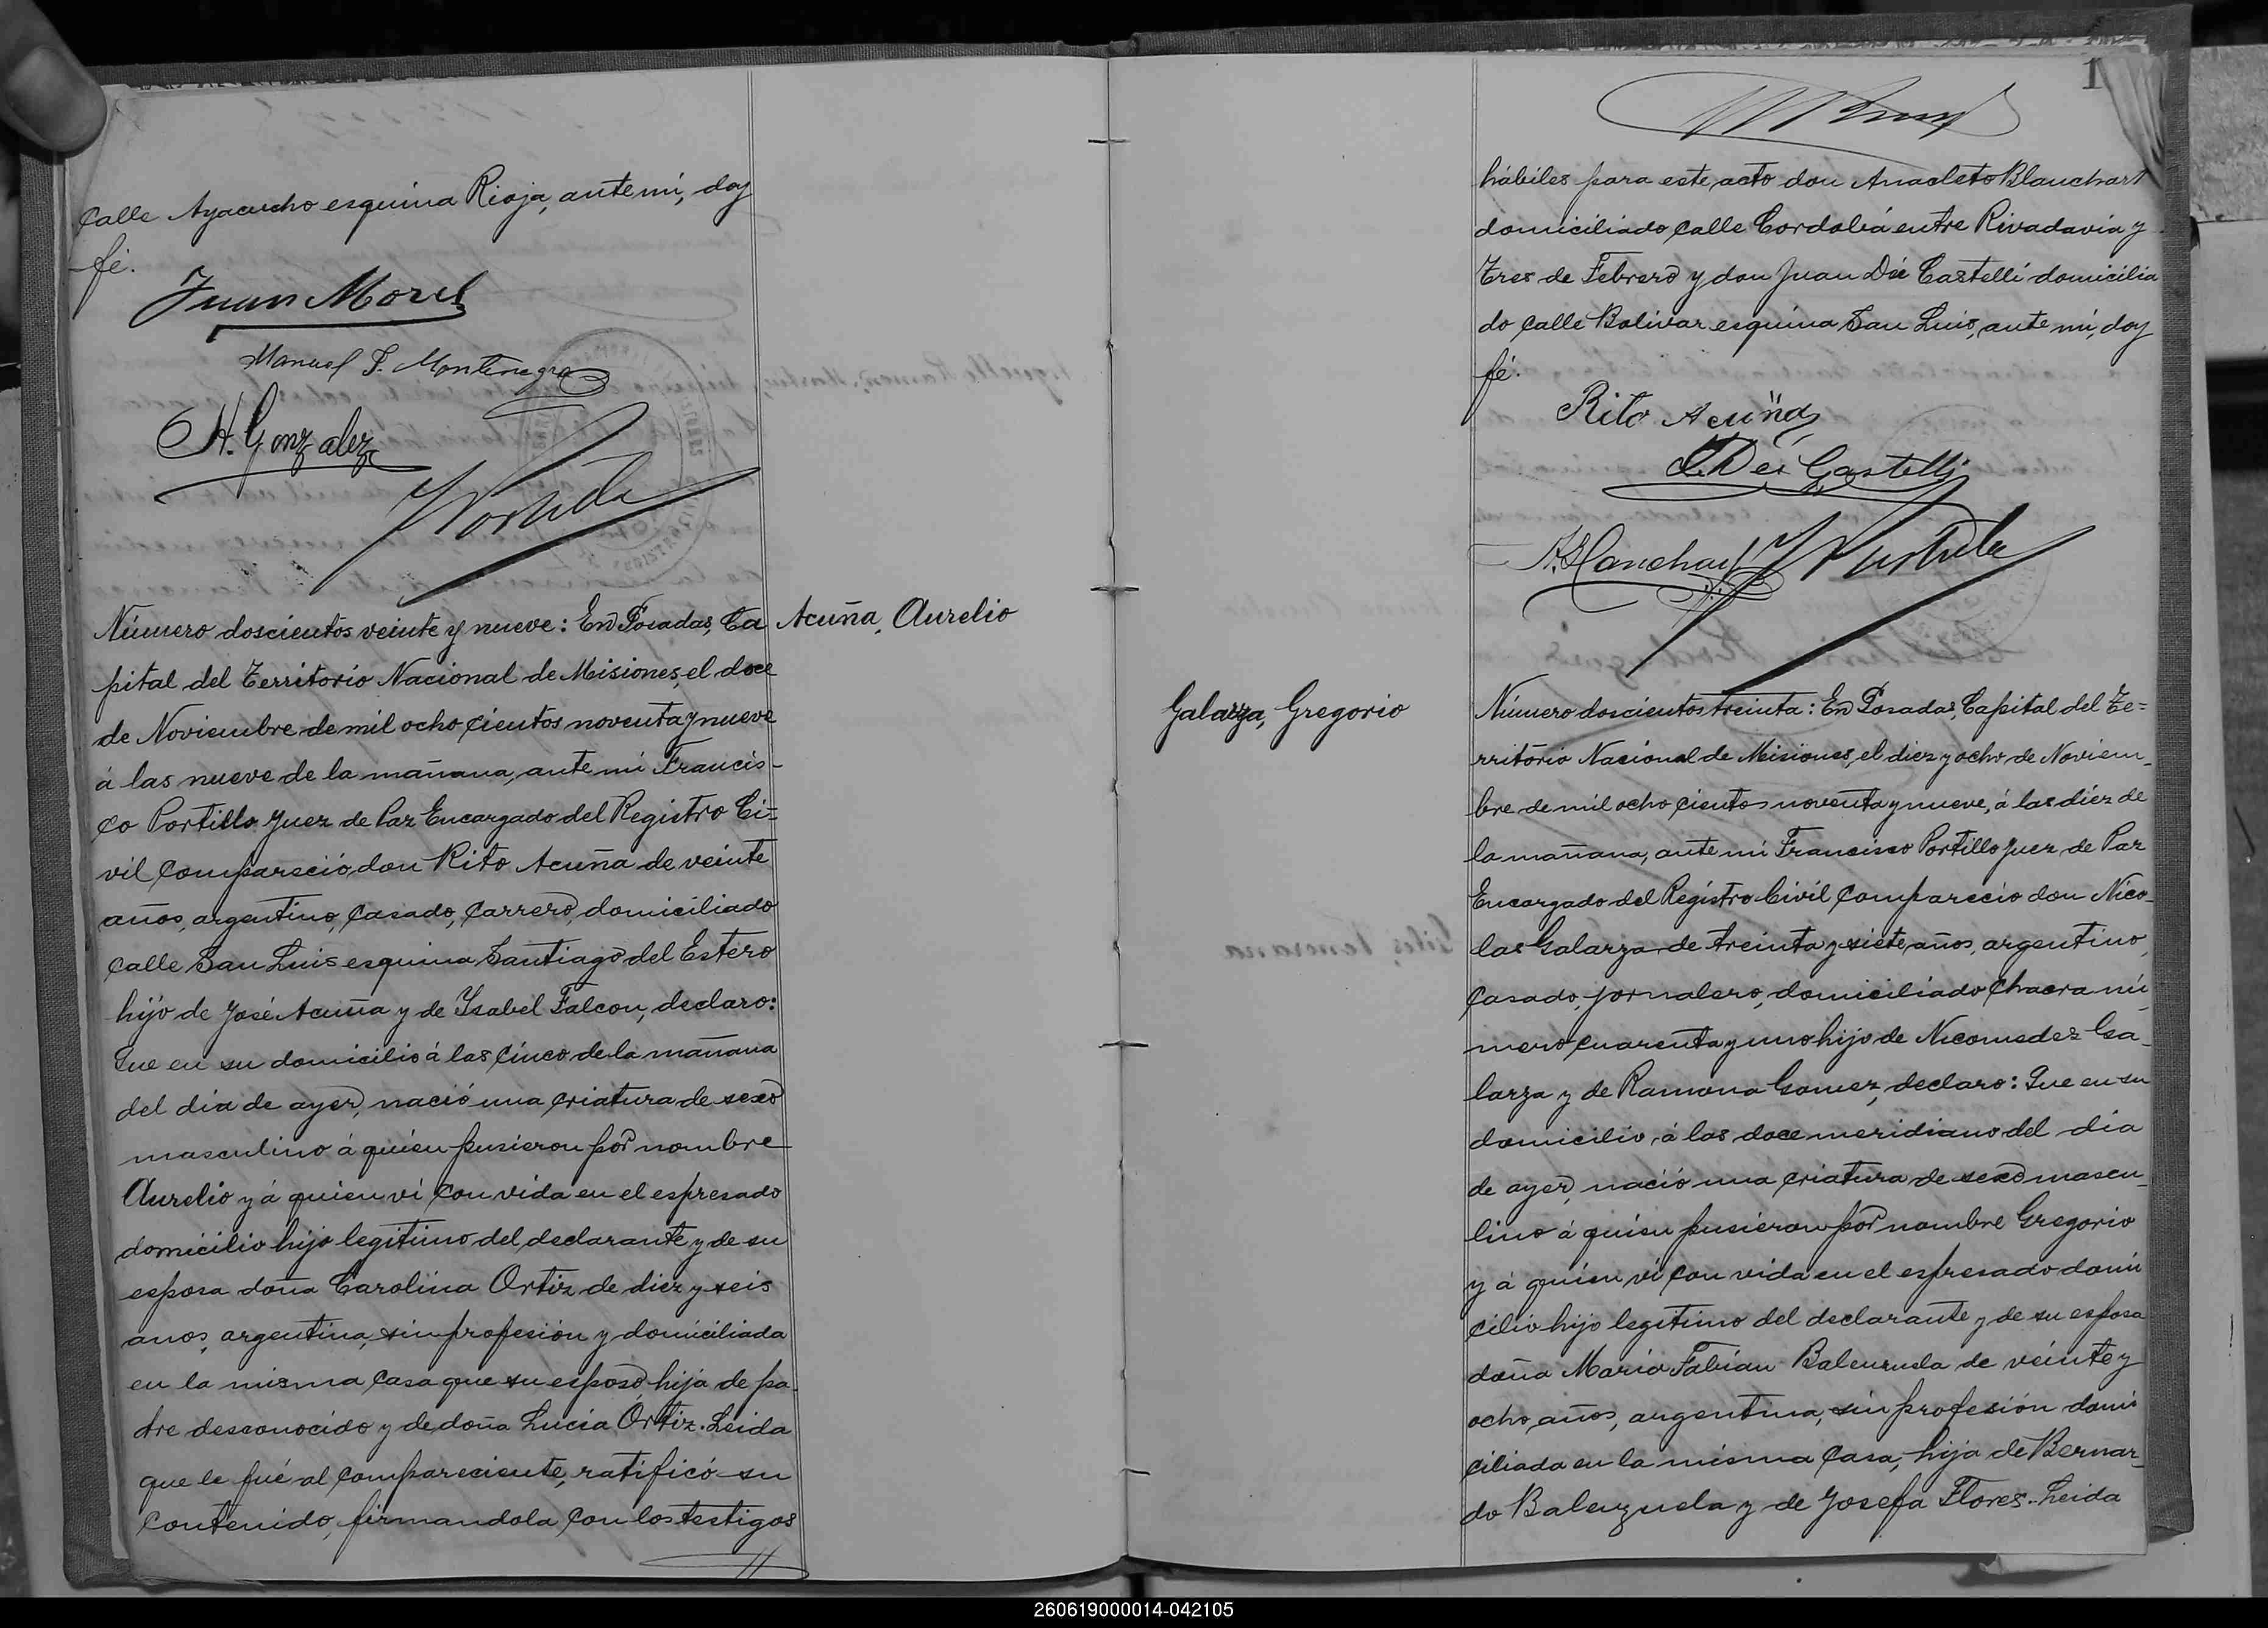 Calle Ayacucho esquina Rioja, ante mí, doy
fé.
Juan Morel
Manuel P. Montenegro
H. Gonzalez
Número doscientos veinte y nueve: En Posadas, Ca
pital del Territorio Nacional de Misiones, el doce
de Noviembre de mil ocho cientos noventa y nueve
á las nueve de la mañana, ante mi Francis-
co Portillo Juez de Paz Encargado del Registro Ci=
vil compareció don Rito Acuña de veinte
años, argentino, casado, carrero, domiciliado
calle San Luis esquina Santiago del Estero
hijo de José Acuña y de Ysabel Falcon, declaro:
Que en su domicilio á las cinco de la mañana
del dia de ayer, nació una criatura de sexo
masculino á quien pusieron por nombre
Aurelio y á quien ví con vida en el espresado
domicilio hijo legitimo del declarante y de su
esposa doña Carolina Ortiz de diez y seis
anos, argentina, sin profesión y domiciliada
en la misma casa que su esposo, hija de pa-
dre desconocido y de doña Lucia Ortiz. Leida
que le fué al compareciente, ratificó su
contenido, firmandola con los testigos
Acuña, Aurelio
1
hábiles para este acto don Anacleto Blanchart
domiciliado calle Cordoba entre Rivadavia y
Tres de Febrero y don Juan Dei Castelli domicilia
do calle Bolivar esquina San Luis, ante mí, doy
fé.
Rito Acuña
J. Dei Castelli
A. Blanchart
Galarza, Gregorio
Número doscientos treinta: En Posadas, Capital del Te=
rritorio Nacional de Misiones, el diez y ocho de Noviem-
bre de mil ocho cientos noventa y nueve, á las diez de
la mañana, ante mi Francisco Portillo Juez de Paz
Encargado del Registro Civil compareció don Nico-
las Galarza, de treinta y siete años, argentino,
casado, jornalero, domiciliado Chacra nú-
mero cuarenta y uno hijo de Nicomedes Ga-
larza y de Ramona Gomez, declaro: Que en su
domicilio, á las doce meridiano del dia
de ayer, nació una criatura de sexo mascu-
lino á quien pusieron por nombre Gregorio
y á quien ví con vida en el espresado domi
cilio hijo legitimo del declarante y de su esposa
doña Maria Fabian Balenzuela de veinte y
ocho años, argentina, sin profesión domi
ciliada en la misma casa, hija de Bernar-
do Balenzuela y de Josefa Flores. Leida
260619000014-042105